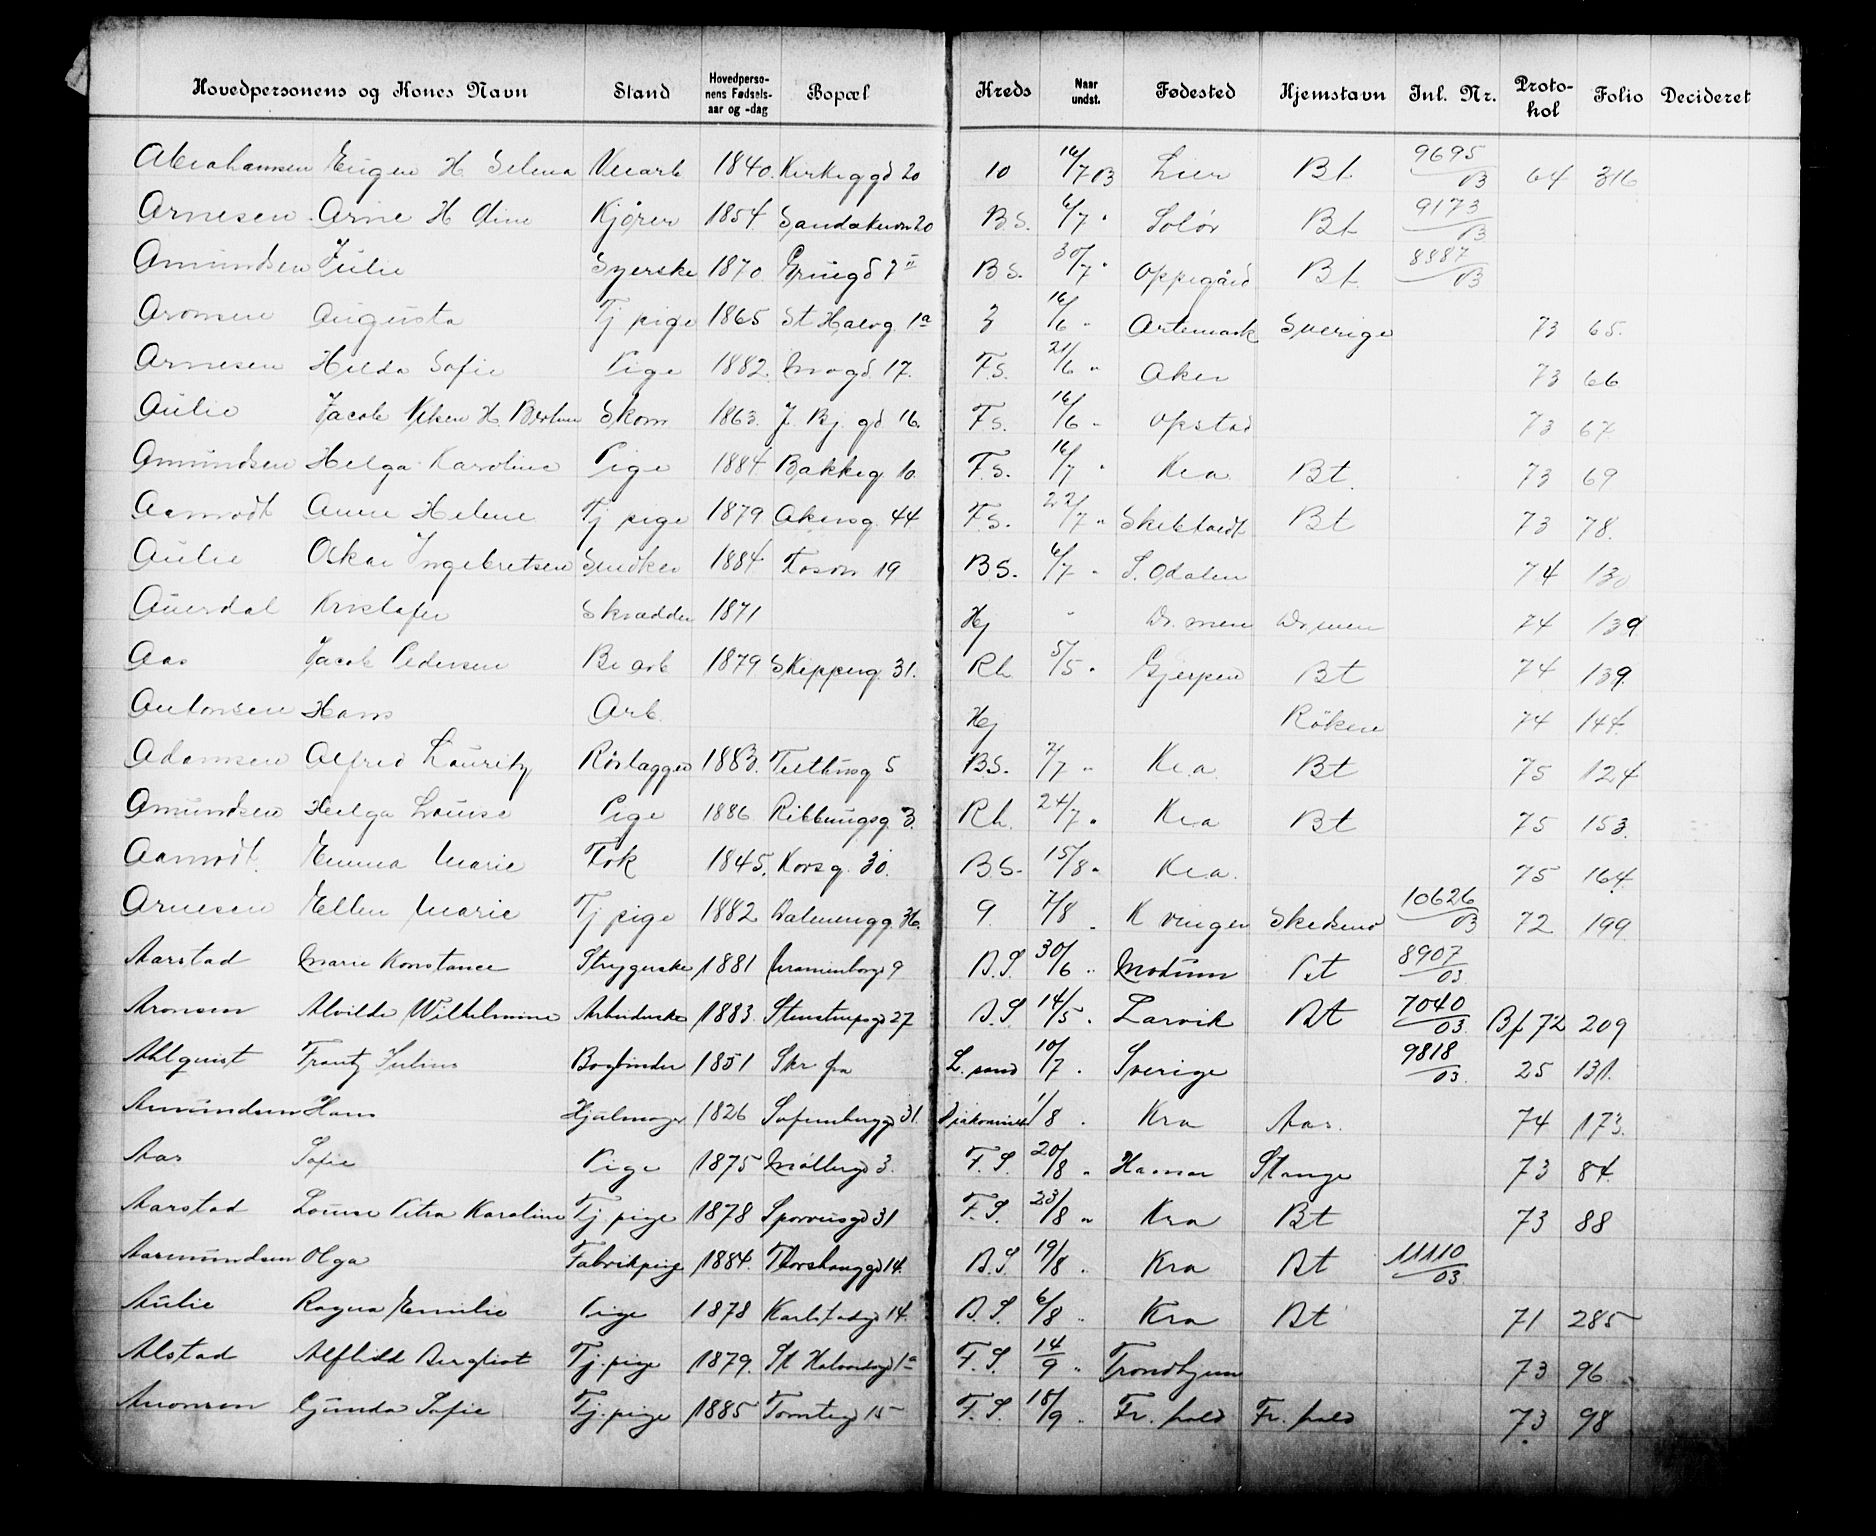 Hovedpersonens og Kones Navn Stand Hovedpersonens Fødselsaar og -dag Bopæl Kreds Naar undst. Fødested Hjemstavn Inl. Nr. Protokol Folio Decideret
Abrahamsen Eugen H Selma 1840. Kirkeggd 20 10 16/7 03 Lier Bt. 9695/03 64 316
Arnesen Arne H Kjører 1854 20 B.S. 6/7 " Solør Bt 9173/03
Amundsen Julie Syerske 1870. 7 II B S. 30/7 " Oppegård Bt 8887/03
Aronsen Augusta Tj pige 1865 St Halvg 1a 3 16/6 " Artemark Sverige 73 65.
Arnesen Hilda Sofie Pige 1882. 17. F.S. 21/6 " Aker 73 66
Aulie Jacob H. Skom 1863. J. Bj. gd 16. F.S. 16/6 " 73 67
Amundsen Helga Karoline Pige 1884. Bakkeg 10. F.S. 16/7 " Kra Bt. 73 69
Aamodt Anne Helene Tj pige 1879 Akersg 44 F.S. 22/7 " Bt 73 78.
Aulie Oskar Ingebretsen 1884 19 B S. 6/7 " S. Odalen 74 130
Auerdal Kristofer Skrædder 1871 Hj " Dr. men Dr. men 74 139
Aas Jacob Pedersen 1879 Skipperg 31. Rh 5/5 " Gjerpen Bt 74 139.
Antonsen Hans Arb. Hj Röken 74 144.
Adamsen Alfred Lauritz Rörlægger 1883. 5 B.S. 7/7 " Kra Bt 75 124
Amundsen Helga Louise Pige 1886 3. Rh. 24/7 " Kra Bt 75 153.
Aamodt. Emma Marie Frk 1845. Korsg. 30. B.S. 15/8 " Kra. 75 164
Arnesen Ellen Marie Tj pige 1882 36. 9. 7/8 " K vinger Skedsmo 10626/03 72 199
Aarstad Marie Konstance Strygerske 1881 9 B.S. 30/6 " Modum Bt 8907/03
Aronsen Alvilde Wilhelmine Arbeiderske 1883. Stenstrupgd 27 B.S. 14/5 " Larvik Bt 7040/03. Bf 72 209
Ahlquist Frantz Julius Bogbinder 1851 Skr fra L. sand 10/7 " Sverige 9818/03. 25 131.
Amundsen Hans 1826 31. 1/8 " Kra Aas. 74 173.
Aas Sofie Pige 1875 Møllergd 3. F.S. 20/8 " Hamar Stange 73 84.
Aarstad Louise Petra Karoline Tj. pige 1878 31 F.S. 23/8 " Kra Bt 73 88
Aasmundsen Olga Fabrikpige 1884. Thorshauggd 14. B.S. 19/8 " Kra Bt 11110/03
Aulie Ragna Emilie Pige 1878 Karlstadgd 14. B.S. 6/8 " Kra Bt 71 285
Alstad Alfhild Bergliot Tj. pige 1879. St Halvardsgd 1a F.S. 14/9 " Trondhjem 73 96
Aronsen Gunda Sofie Tj. pige 1885 Tomtegd 15 F.S. 18/9 " Fr. hald Fr. hald 73 98